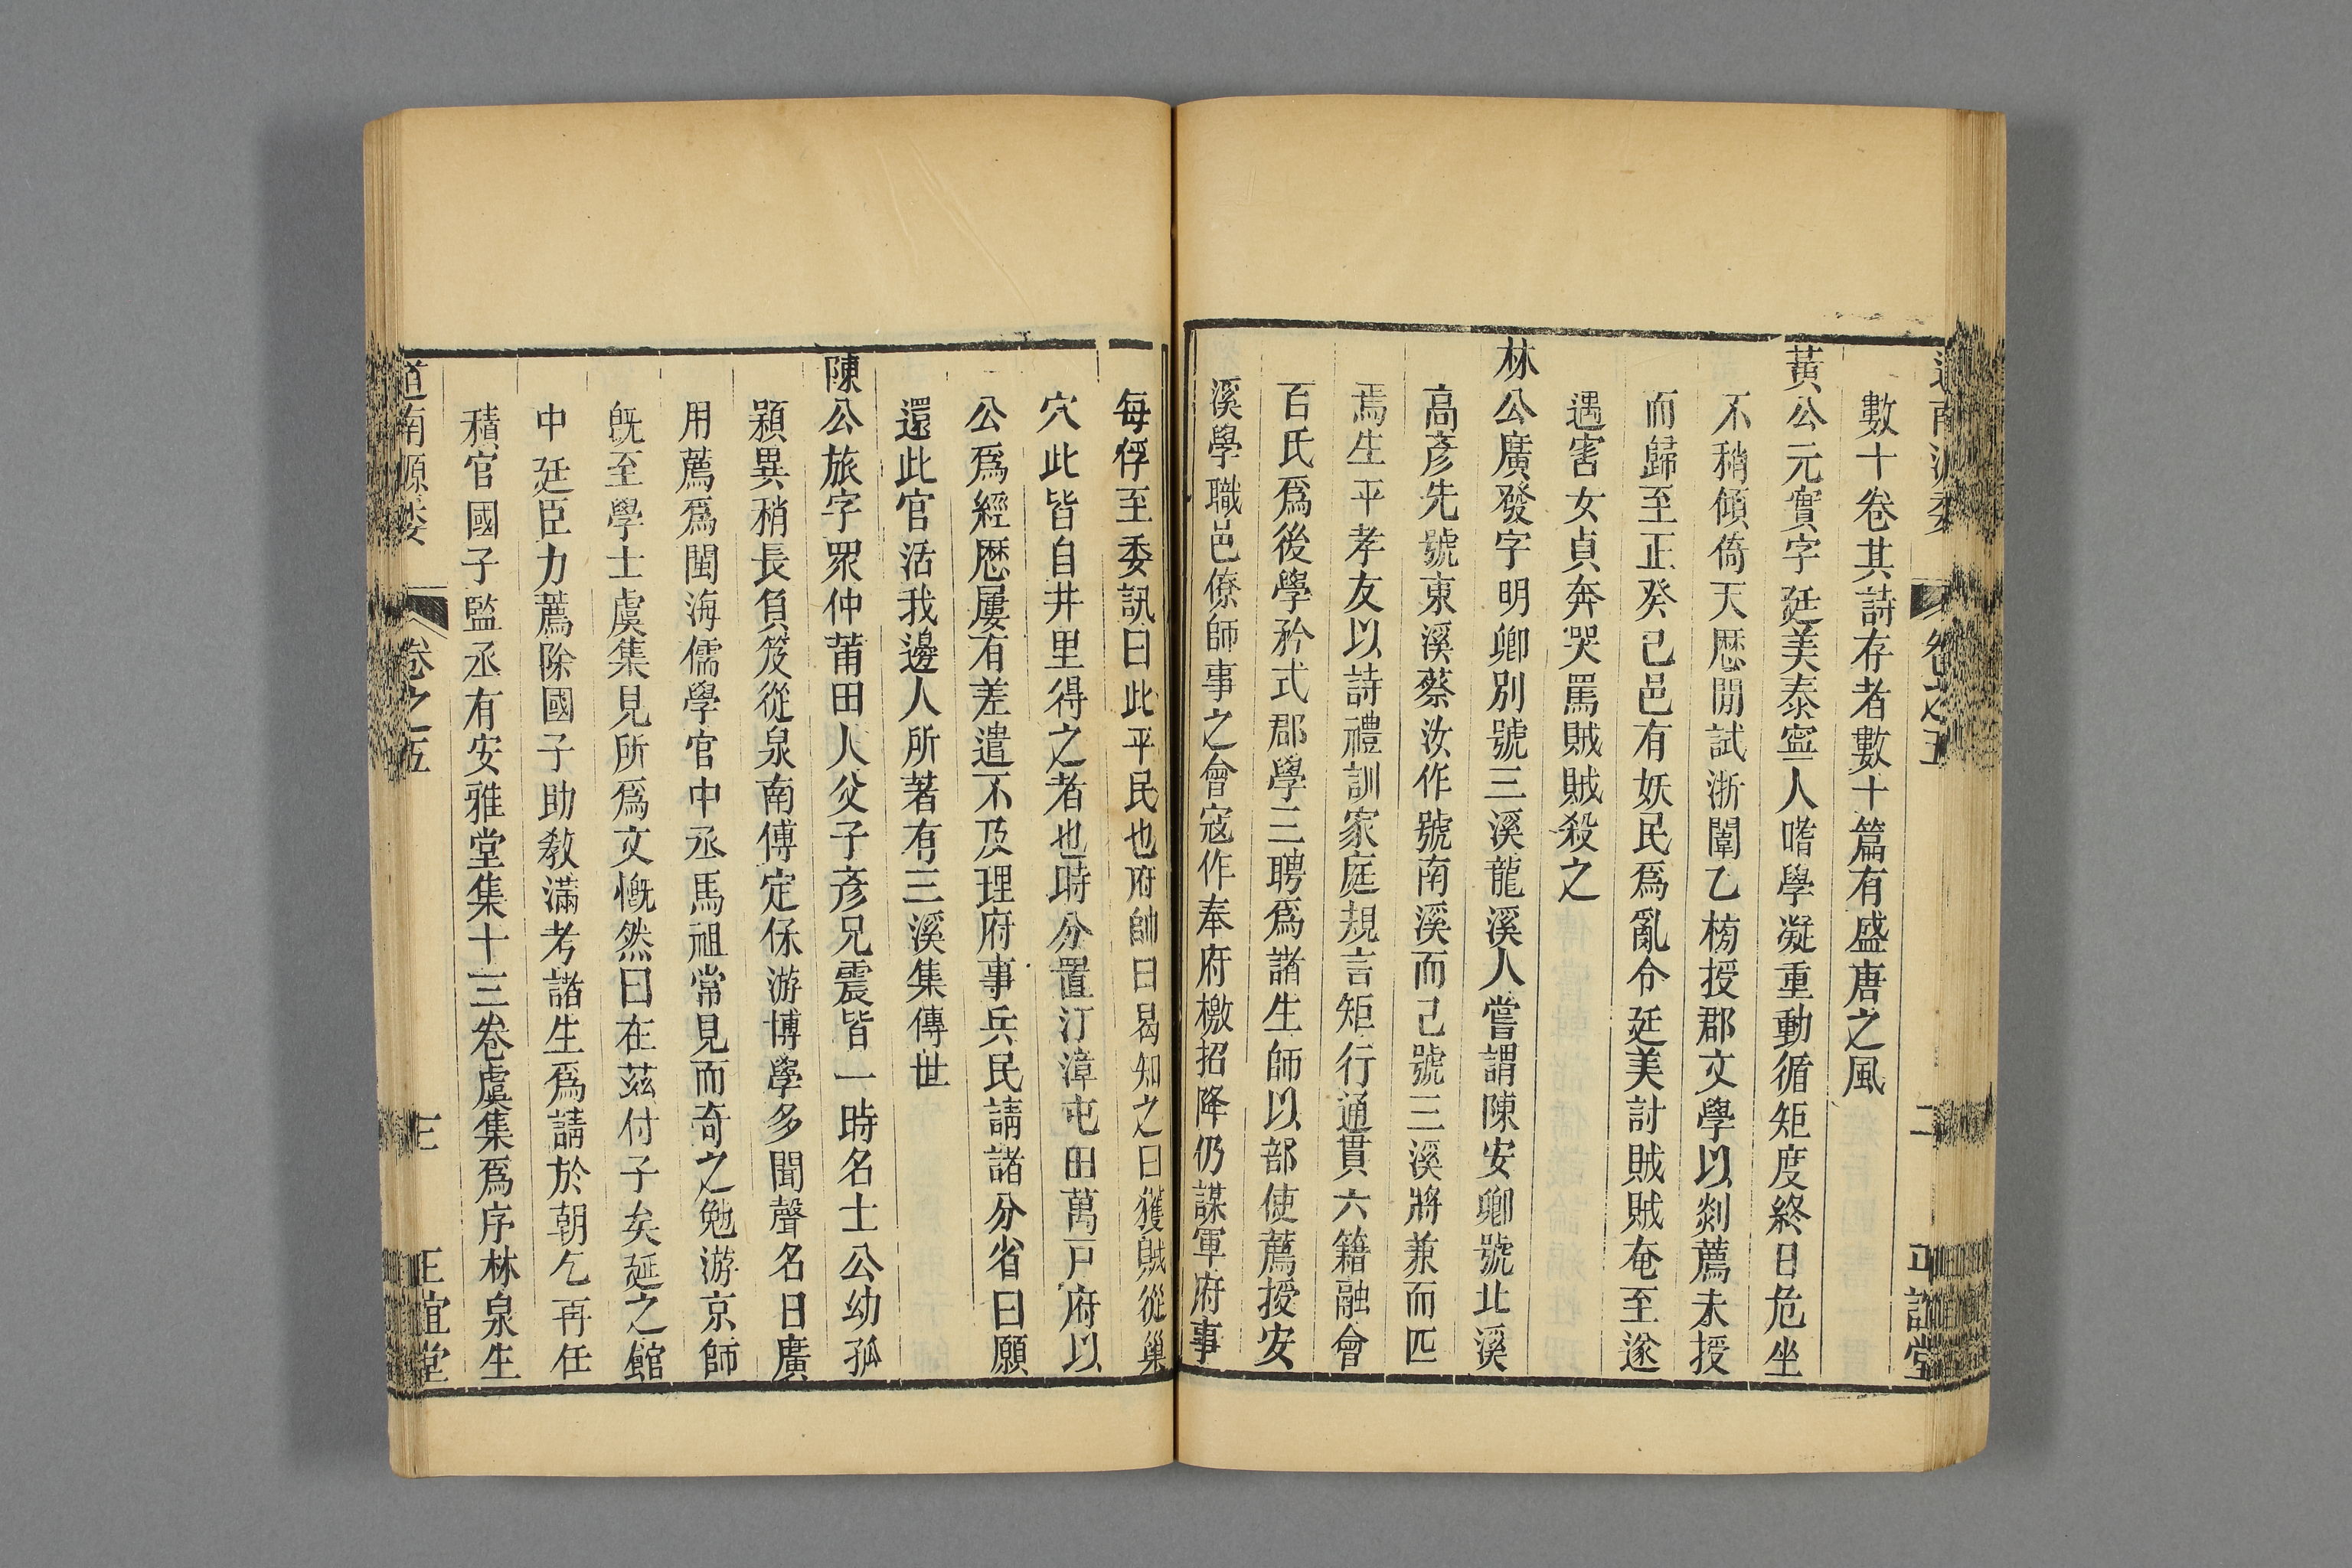 數十卷其詩存者數十篇有盛唐之風
黃公元實字廷美泰寍人嗜學凝重動循矩度終日危坐
不稍傾倚天厯閒試浙闈乙榜授郡文學以剡薦未授
而歸至正癸己邑有妖民爲亂令廷美討賊賊奄至遂
遇害女貞奔哭罵賊賊殺之
林公廣發字明卿別號三溪龍溪人嘗謂陳安卿號北溪
高彥先號東溪蔡汝作號南溪而己號三溪將兼而匹
焉生平孝友以詩禮訓家庭規言矩行通貫六籍融會
百氏爲後學矜式郡學三聘爲諸生師以部使薦授安
溪學職邑僚師事之會寇作奉府檄招降仍謀軍府事
每俘至委訊曰此平民也府帥曰曷知之曰獲賊從巢
穴此皆自井里得之者也時分置汀漳屯田萬戸府以
公爲經厯屢有差遣不及理府事兵民請諸分省曰願
還此官活我邊人所著有三溪集傳世
陳公旅字眾仲莆田人父子彥兄震皆一時名士公幼孤
穎異稍長負笈從泉南傅定保游博學多聞聲名日廣
用薦爲閩海儒學官中丞馬祖常見而奇之勉游京師
旣至學士虞集見所爲文慨然曰在茲付子矣延之館
中廷臣力薦除國子助敎滿考諸生爲請於朝乞再任
積官國子監丞有安雅堂集十三卷虞集爲序林泉生
道南源委 卷之五 三 正誼堂